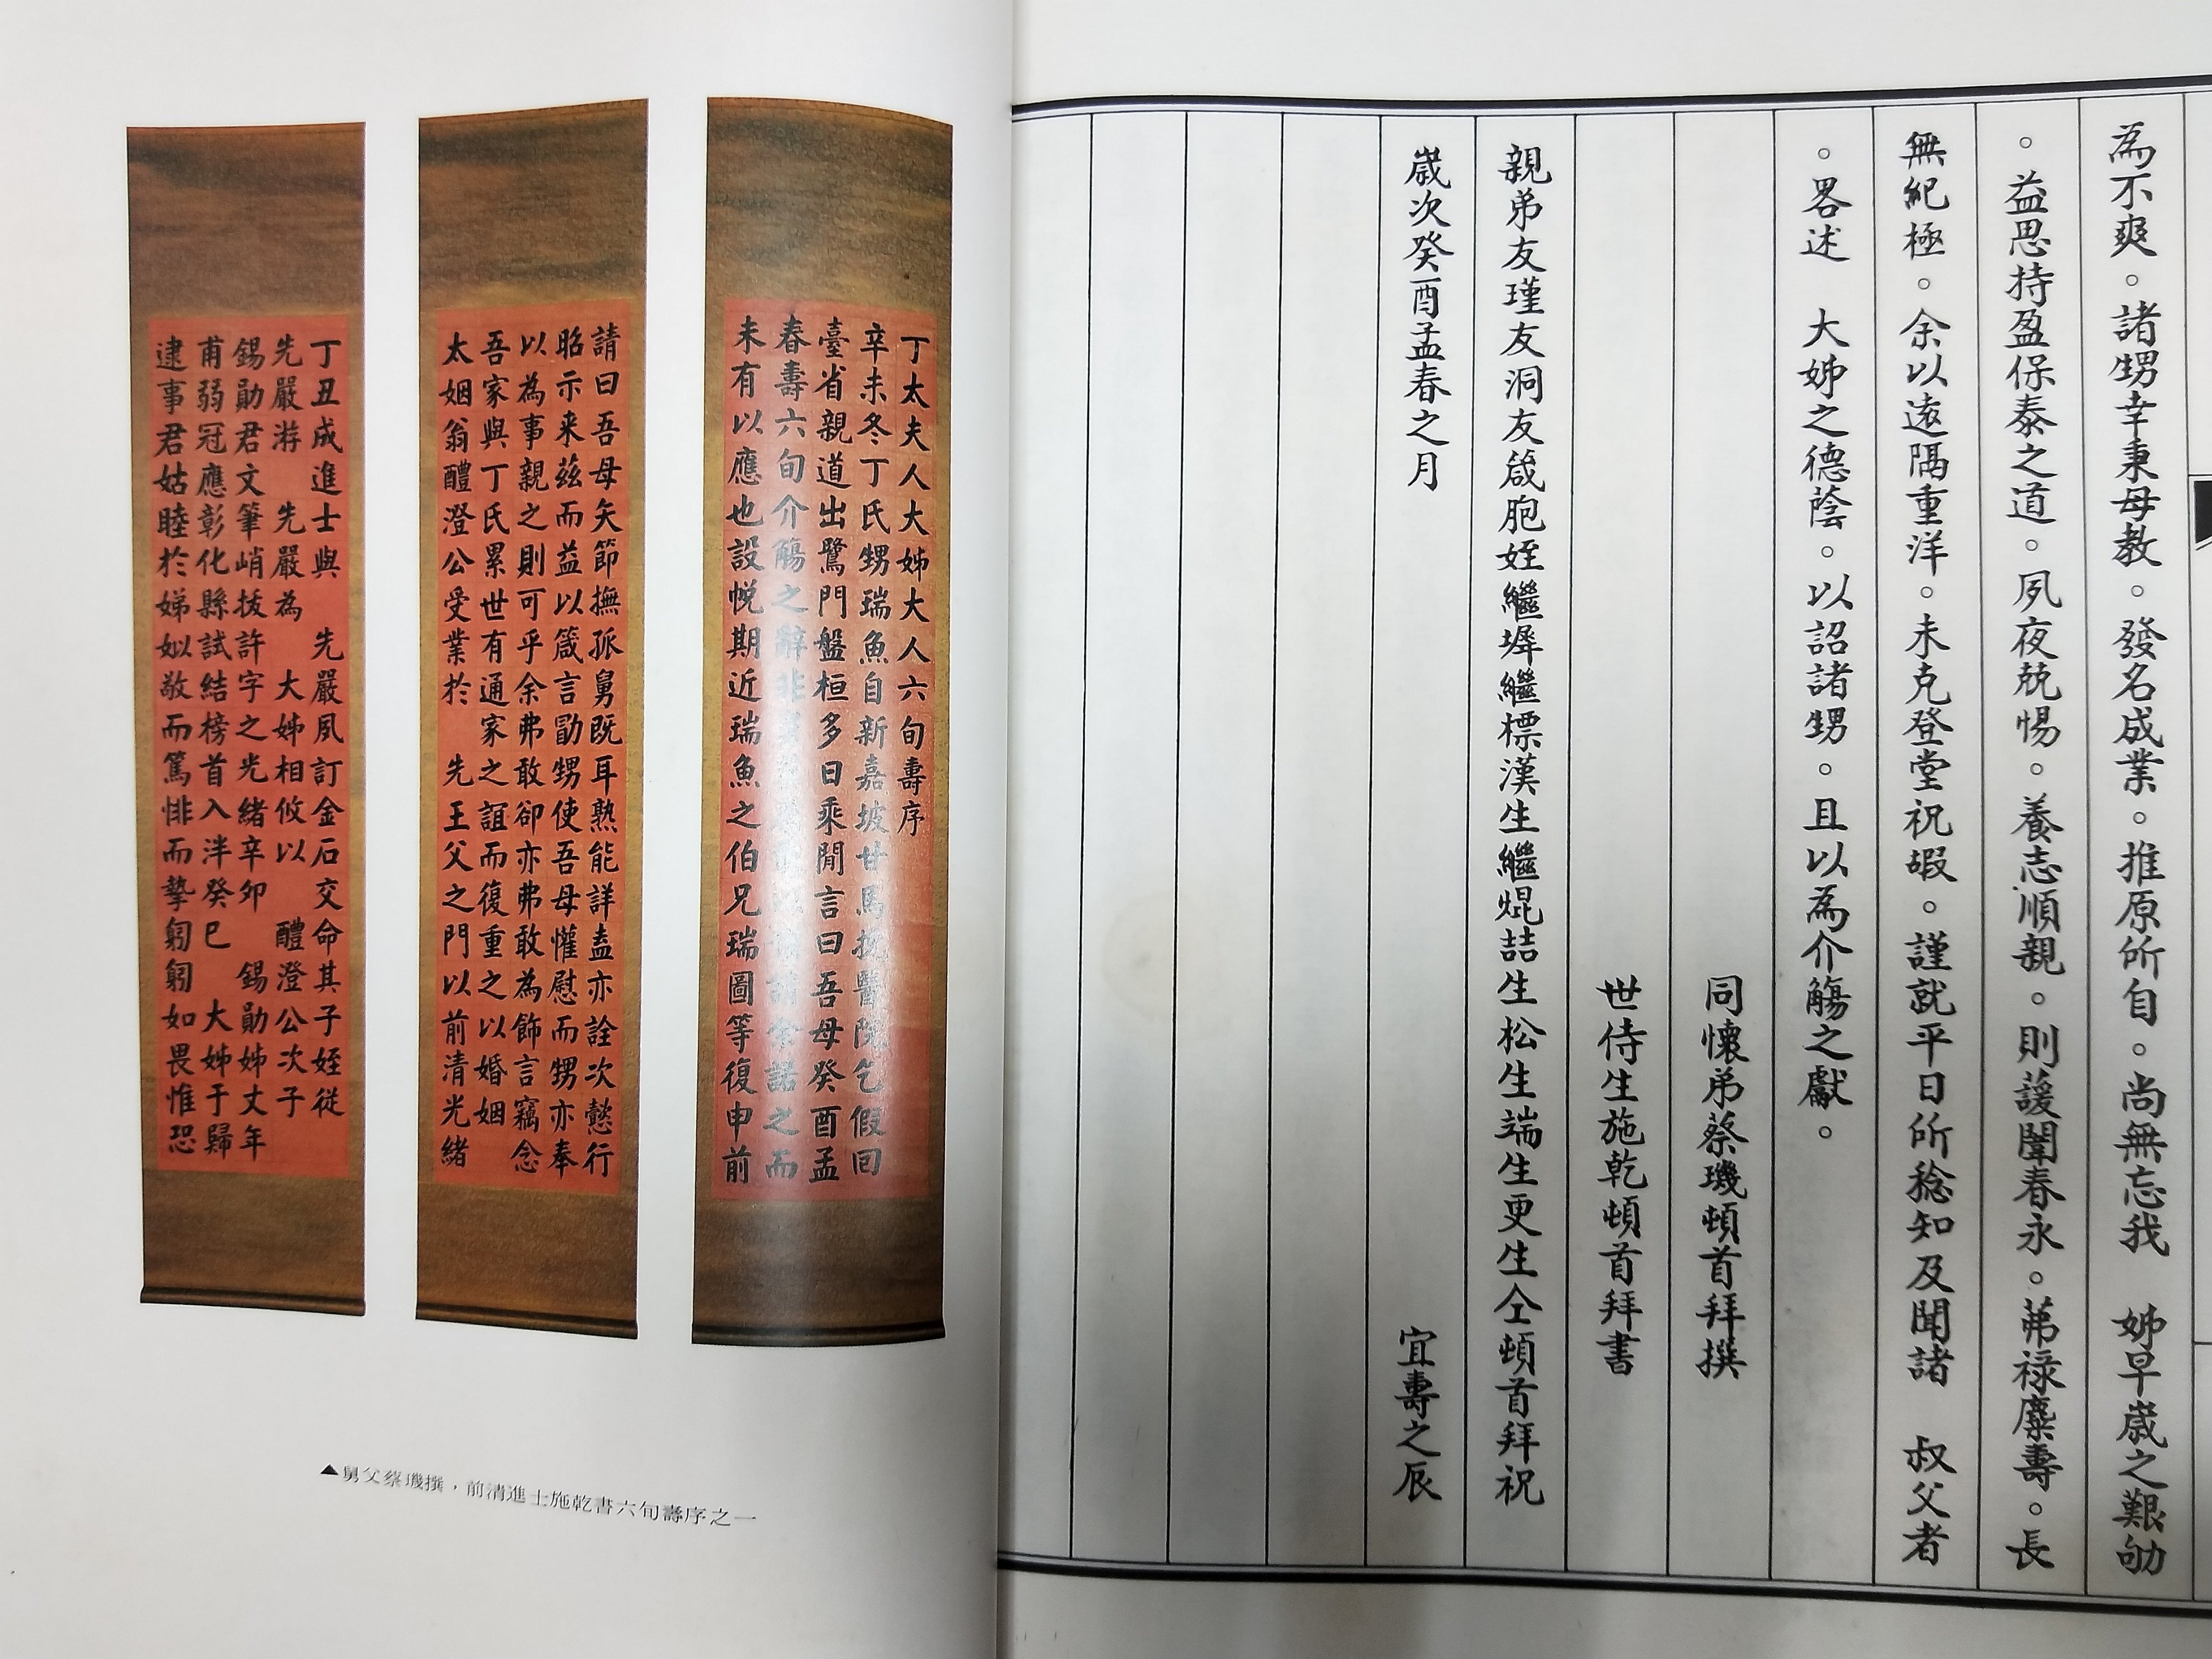 為不爽。諸甥幸秉母教。發名成業。推原所自。尚無忘我　姊早歲之艱劬
。益思持盈保泰之道。夙夜兢惕。養志順親。則諼闈春永。茀祿麋壽。長
無紀極。余以遠隔重洋。未克登堂祝嘏。謹就平日所稔知及聞諸　叔父者
。畧述　大姊之德蔭。以詔諸甥。且以為介觴之獻。
同懷弟蔡璣頓首拜撰
世侍生施乾頓首拜書
親弟友瑾友洞友箴胞姪繼墀繼標漢生繼焜喆生松生端生更生仝頓首拜祝
歲次癸酉孟春之月　宜壽之辰
丁太夫人大姊大人六旬壽序
辛未冬丁氏甥瑞魚自新嘉坡甘馬挽醫院乞假回
臺省親道出鷺門盤桓多日乘閒言曰吾母癸酉孟
春壽六旬介觴之辭非舅請余諾之而
未有以應也設帨期近瑞魚之伯兄瑞圖等復申前
請曰吾母矢節撫孤舅既耳熟能詳盍亦詮次懿行
昭示来茲而益以箴言勖甥使吾母懽慰而甥亦奉
以為事親之則可乎余弗敢卻亦弗敢為飾言竊念
吾家與丁氏累世有通家之誼而復重之以婚姻
太姻翁醴澄公受業於　先王父之門以前清光緒
丁丑成進士與　先嚴夙訂金石交命其子姪從
先嚴游　先嚴為　大姊相攸以　醴澄公次子
錫勛君文筆峭拔許字之光緒辛卯　錫勛姊丈年
甫弱冠應彰化縣試結榜首入泮癸巳　大姊于歸
逮事君姑睦於娣姒敬而篤悱而摯躬躬如畏惟恐
▲舅父蔡璣撰，前清進士施乾書六旬壽序之一